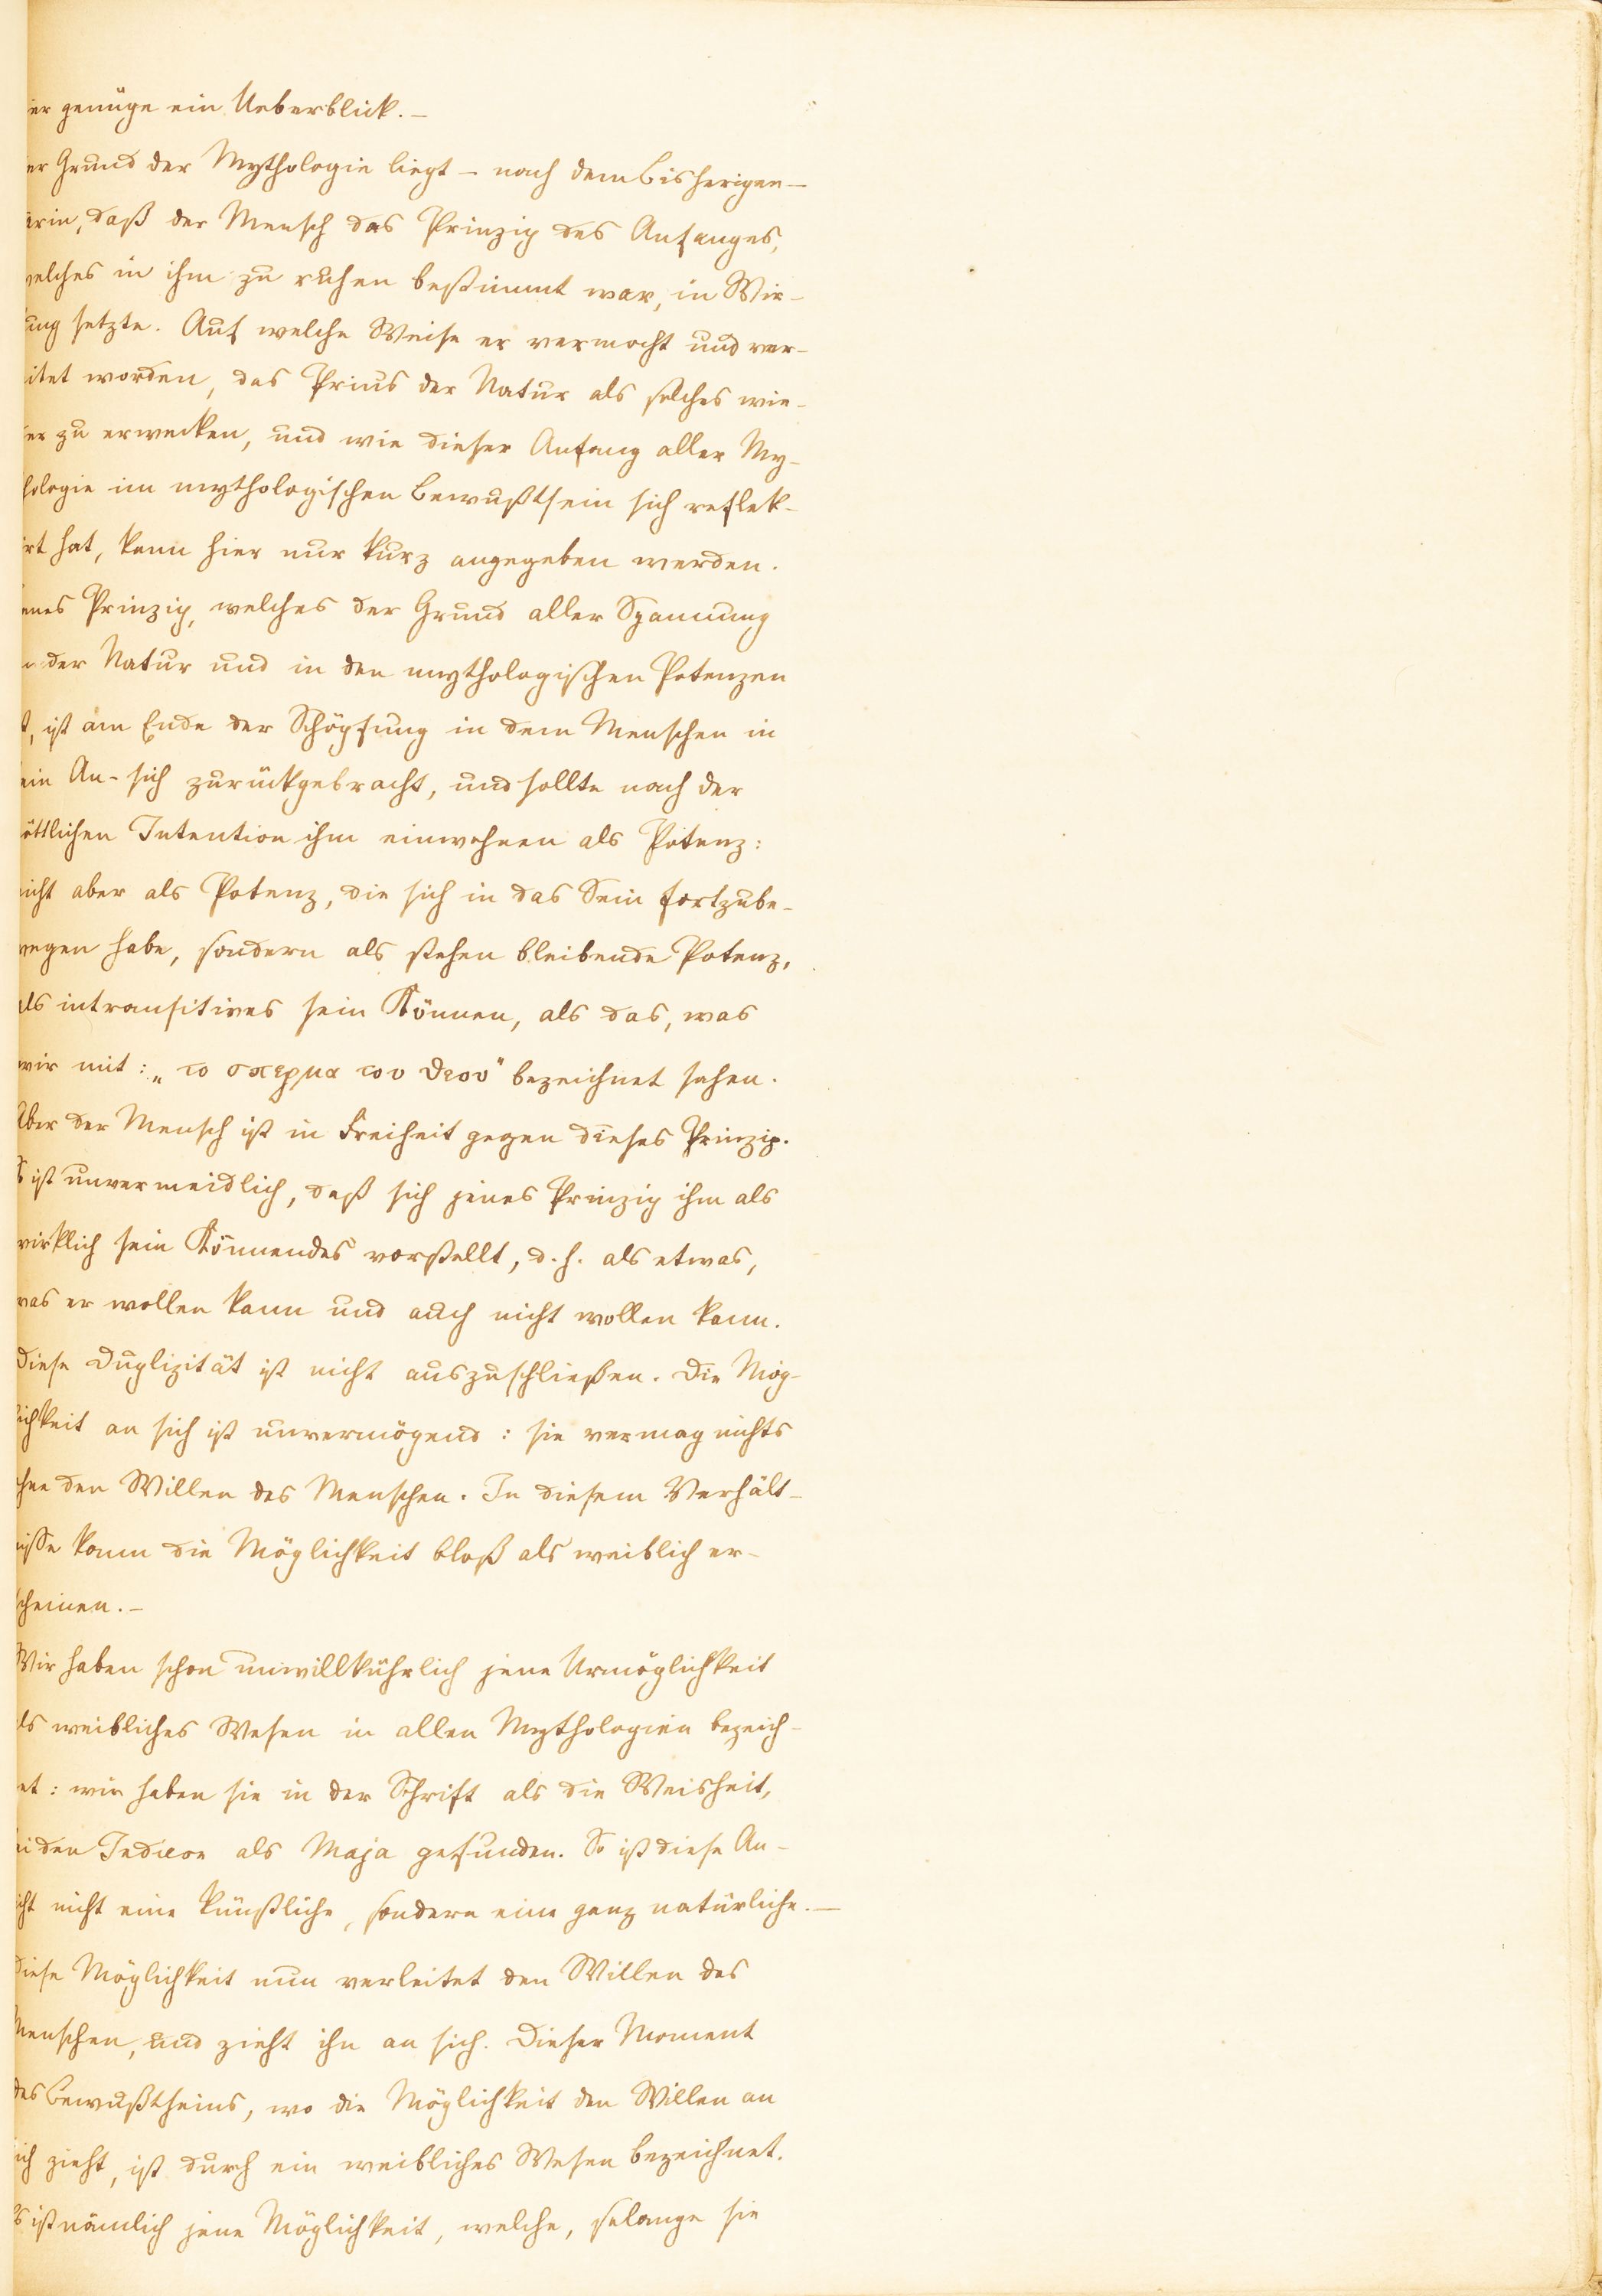 er genüge ein Ueberblick. –
er Grund der Mythologie liegt – nach dem Bisherigen –
arin, daß der Mensch das Prinzip des Anfanges,
welches in ihm zu ruhen bestimmt war, in Wir-
ung setzte. Auf welche Weise er vermocht und ver-
itet worden, das Prius der Natur als solches wie-
er zu erwecken, und wie dieser Anfang aller My-
hologie im mythologischen Bewußtsein sich reflek-
irt hat, kann hier nur kurz angegeben werden.
enes Prinzip, welches der Grund aller Spannung
n der Natur und in den mythologischen Potenzen
t, ist am Ende der Schöpfung in dem Menschen in
ein An-sich zurückgebracht, und sollte nach der
öttlichen Intention ihm einwohnen als Potenz:
icht aber als Potenz, die sich in das Sein fortzube-
wegen habe, sondern als stehen bleibende Potenz,
als intransitives sein Können, als das, was
wir mit: „το σπερμα του θεου“ bezeichnet sahen.
Aber der Mensch ist in Freiheit gegen dieses Prinzip.
s ist unvermeidlich, daß sich jenes Prinzip ihm als
wirklich sein Könnendes vorstellt, d. h. als etwas,
was er wollen kann und auch nicht wollen kann.
Diese Duplizität ist nicht auszuschließen. Die Mög-
lichkeit an sich ist unvermögend: sie vermag nichts
ohne den Willen des Menschen. In diesem Verhält-
nisse kann die Möglichkeit bloß als weiblich er-
scheinen. –
Wir haben schon unwillkührlich jene Urmöglichkeit
als weibliches Wesen in allen Mythologien bezeich-
et: wir haben sie in der Schrift als die Weisheit,
ei den Indiern als Maja gefunden. So ist diese An-
icht nicht eine künstliche, sondern eine ganz natürliche. –
Diese Möglichkeit nun verleitet den Willen des
Menschen, und zieht ihn an sich. Dieser Moment
des Bewußtseins, wo die Möglichkeit den Willen an
ich zieht, ist durch ein weibliches Wesen bezeichnet.
s ist nämlich jene Möglichkeit, welche, solange sie